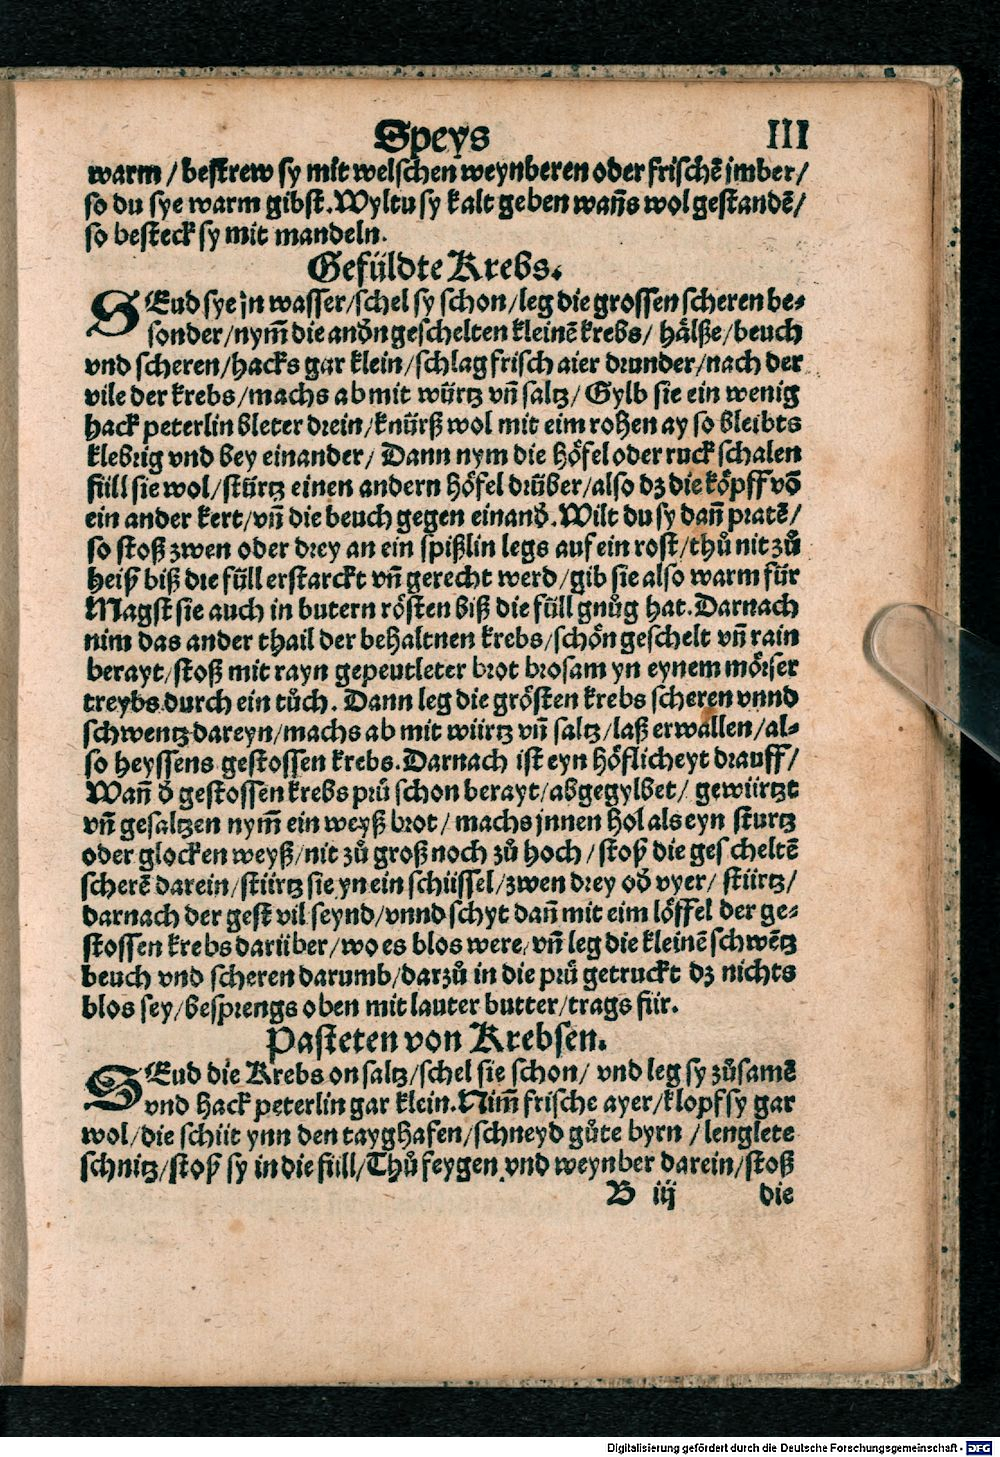 Speys III
warm / bestrew sy mit welschen weynberen oder frischẽ jmber /
so du sye warm gibst. Wyltu sy kalt geben wañs wol gestandẽ /
so besteck sy mit mandeln.
Gefüldte Krebs.
SEud sye jn wasser / schel sy schon / leg die grossen scheren be⸗
sonder / nym̃ die andn̄ geschelten kleinẽ krebs / hälße / beuch
vnd scheren / hacks gar klein / schlag frisch aier drunder / nach der
vile der krebs / machs ab mit würtz vñ saltz / Gylb sie ein wenig
hack peterlin bleter drein / knürß wol mit eim rohen ay so bleibts
klebrig vnd bey einander / Dann nym die höfel oder ruck schalen
füll sie wol / stürtz einen andern höfel drüber / also dz die köpff võ
ein ander kert / vñ die beuch gegen einand̄. Wilt du sy dañ pratẽ /
so stoß zwen oder drey an ein spißlin legs auf ein rost / thů nit zů
heiß biß die füll erstarckt vñ gerecht werd / gib sie also warm für
Magst sie auch in butern rösten biß die füll gnůg hat. Darnach
nim das ander thail der behaltnen krebs / schön geschelt vñ rain
berayt / stoß mit rayn gepeutleter brot brosam yn eynem mörser
treybs durch ein tůch. Dann leg die grösten krebs scheren vnnd
schwentz dareyn / machs ab mit würtz vñ saltz / laß erwallen / al⸗
so heyssens gestossen krebs. Darnach ist eyn höflicheyt drauff /
Wañ d̄ gestossen krebs prü schon berayt / abgegylbet / gewürtzt
vñ gesaltzen nym̃ ein weyß brot / machs jnnen hol als eyn sturtz
oder glocken weyß / nit zů groß noch zů hoch / stoß die gescheltẽ
scherẽ darein / stürtz sie yn ein schüssel / zwen drey od̄ vyer / stürtz /
darnach der gest vil seynd / vnnd schyt dañ mit eim löffel der ge⸗
stossen krebs darüber / wo es blos were / vñ leg die kleinẽ schwẽtz
beuch vnd scheren darumb / darzů in die prü getruckt dz nichts
blos sey / besprengs oben mit lauter butter / trags für.
Pasteten von Krebsen.
SEud die Krebs on saltz / schel sie schon / vnd leg sy zůsamẽ
vnd hack peterlin gar klein. Nim̃ frische ayer / klopf sy gar
wol / die schüt ynn den tayghafen / schneyd gůte byrn / lenglete
schnitz / stoß sy in die füll / Thů feygen vnd weynber darein / stoß
B iij die
Digitalisierung gefördert durch die Deutsche Forschungsgemeinschaft - DFG